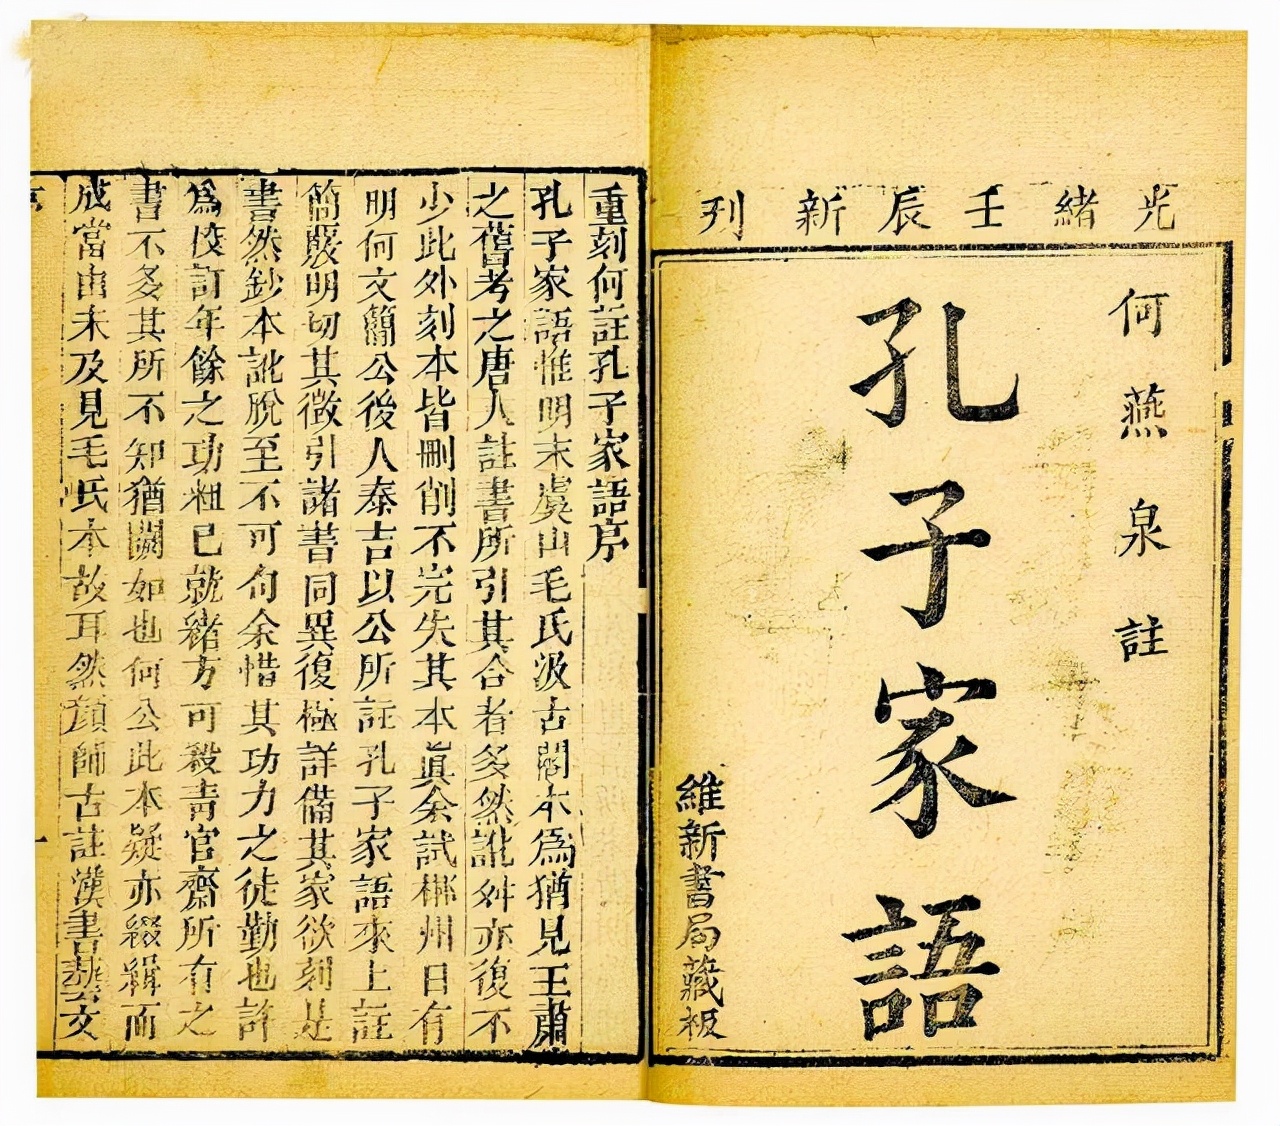 光緒壬辰新刊
何燕泉註
孔子家語
維新書局藏板
重刻何註孔子家語序
孔子家語惟明末虞山毛氏汲古閣本爲猶見王肅
之舊考之唐人註書所引其合者多然訛舛亦復不
少此外刻本皆刪削不完失其本眞余試郴州日有
明何文簡公後人泰吉以公所註孔子家語來上註
簡嚴明切其徵引諸書同異復極詳備其家欲刻是
書然鈔本訛脫至不可句余惜其功力之徒勤也許
爲校訂年餘之功粗已就緒方可殺靑官齋所有之
書不多其所不知猶闕如也何公此本疑亦綴緝而
成當由未及見毛氏本故耳然顏師古註漢書藝文